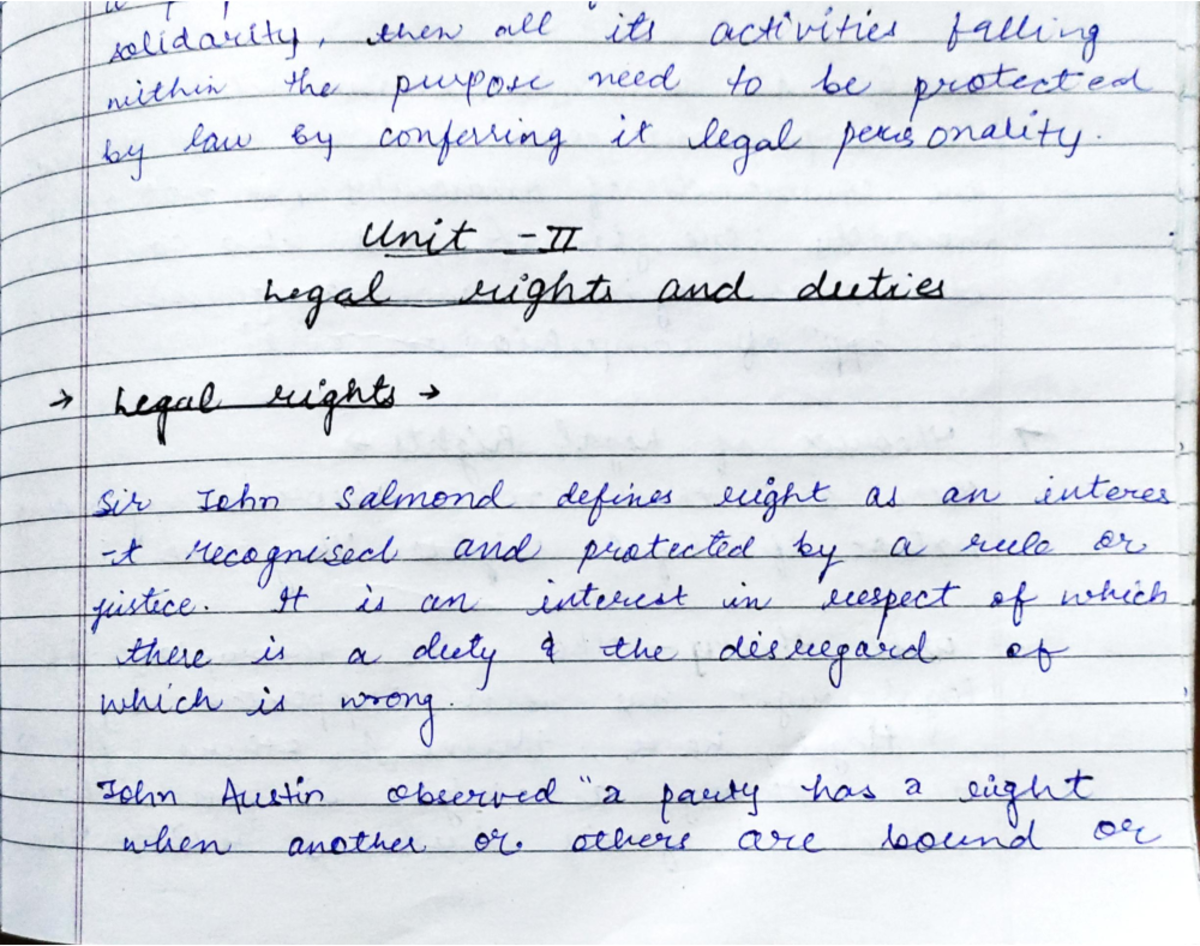 solidarity, then all its activities falling
within the purpose need to be protected
by law by conferring it legal personality.
Unit - II
Legal rights and duties
→ Legal rights →
Sir John Salmond defines right as an interes
-t recognised and protected by a rule or
justice. It is an interest in respect of which
there is a duty & the disregard of
which is wrong.
John Austin observed "a party has a right
when another or others are bound or